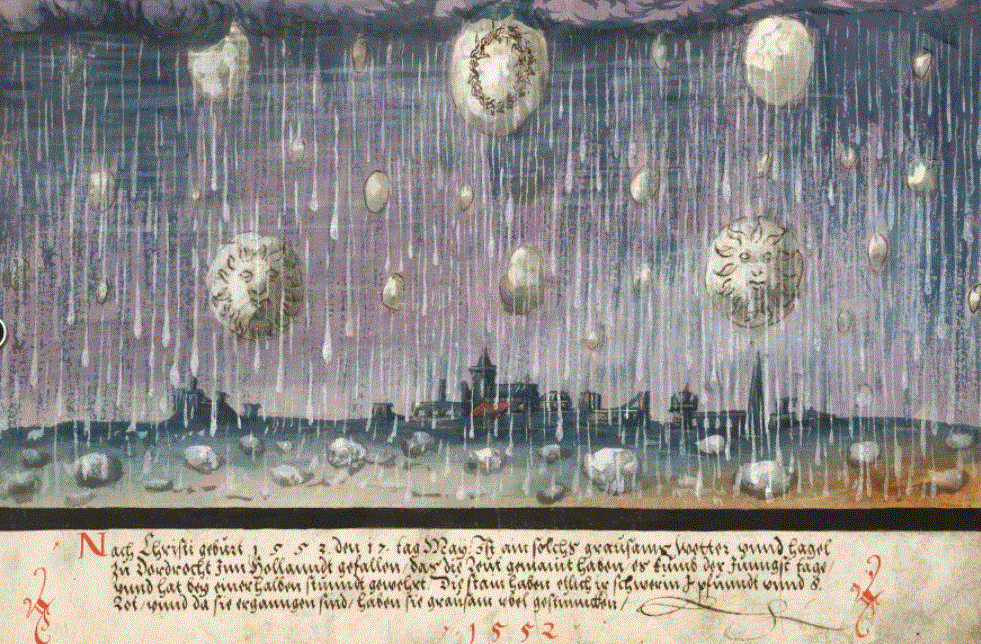 Nach Christi geburt 1 5 5 2 den 17 tag May Ist ain solchs grausamß wetter vnnd hagel
zü Dordrocht Inn Hollanndt gefallen / das die leüt gemaint haben, es kumb der Jüngst tage /
vnnd hat beÿ einer halben stünndt gewehrt Die stain haben etlich jr schwerin 1 pfünndt vnnd 8.
Lot / vnnd da sie erganngen sind / haben sie grausam vbel gestünncken /
1 5 5 2